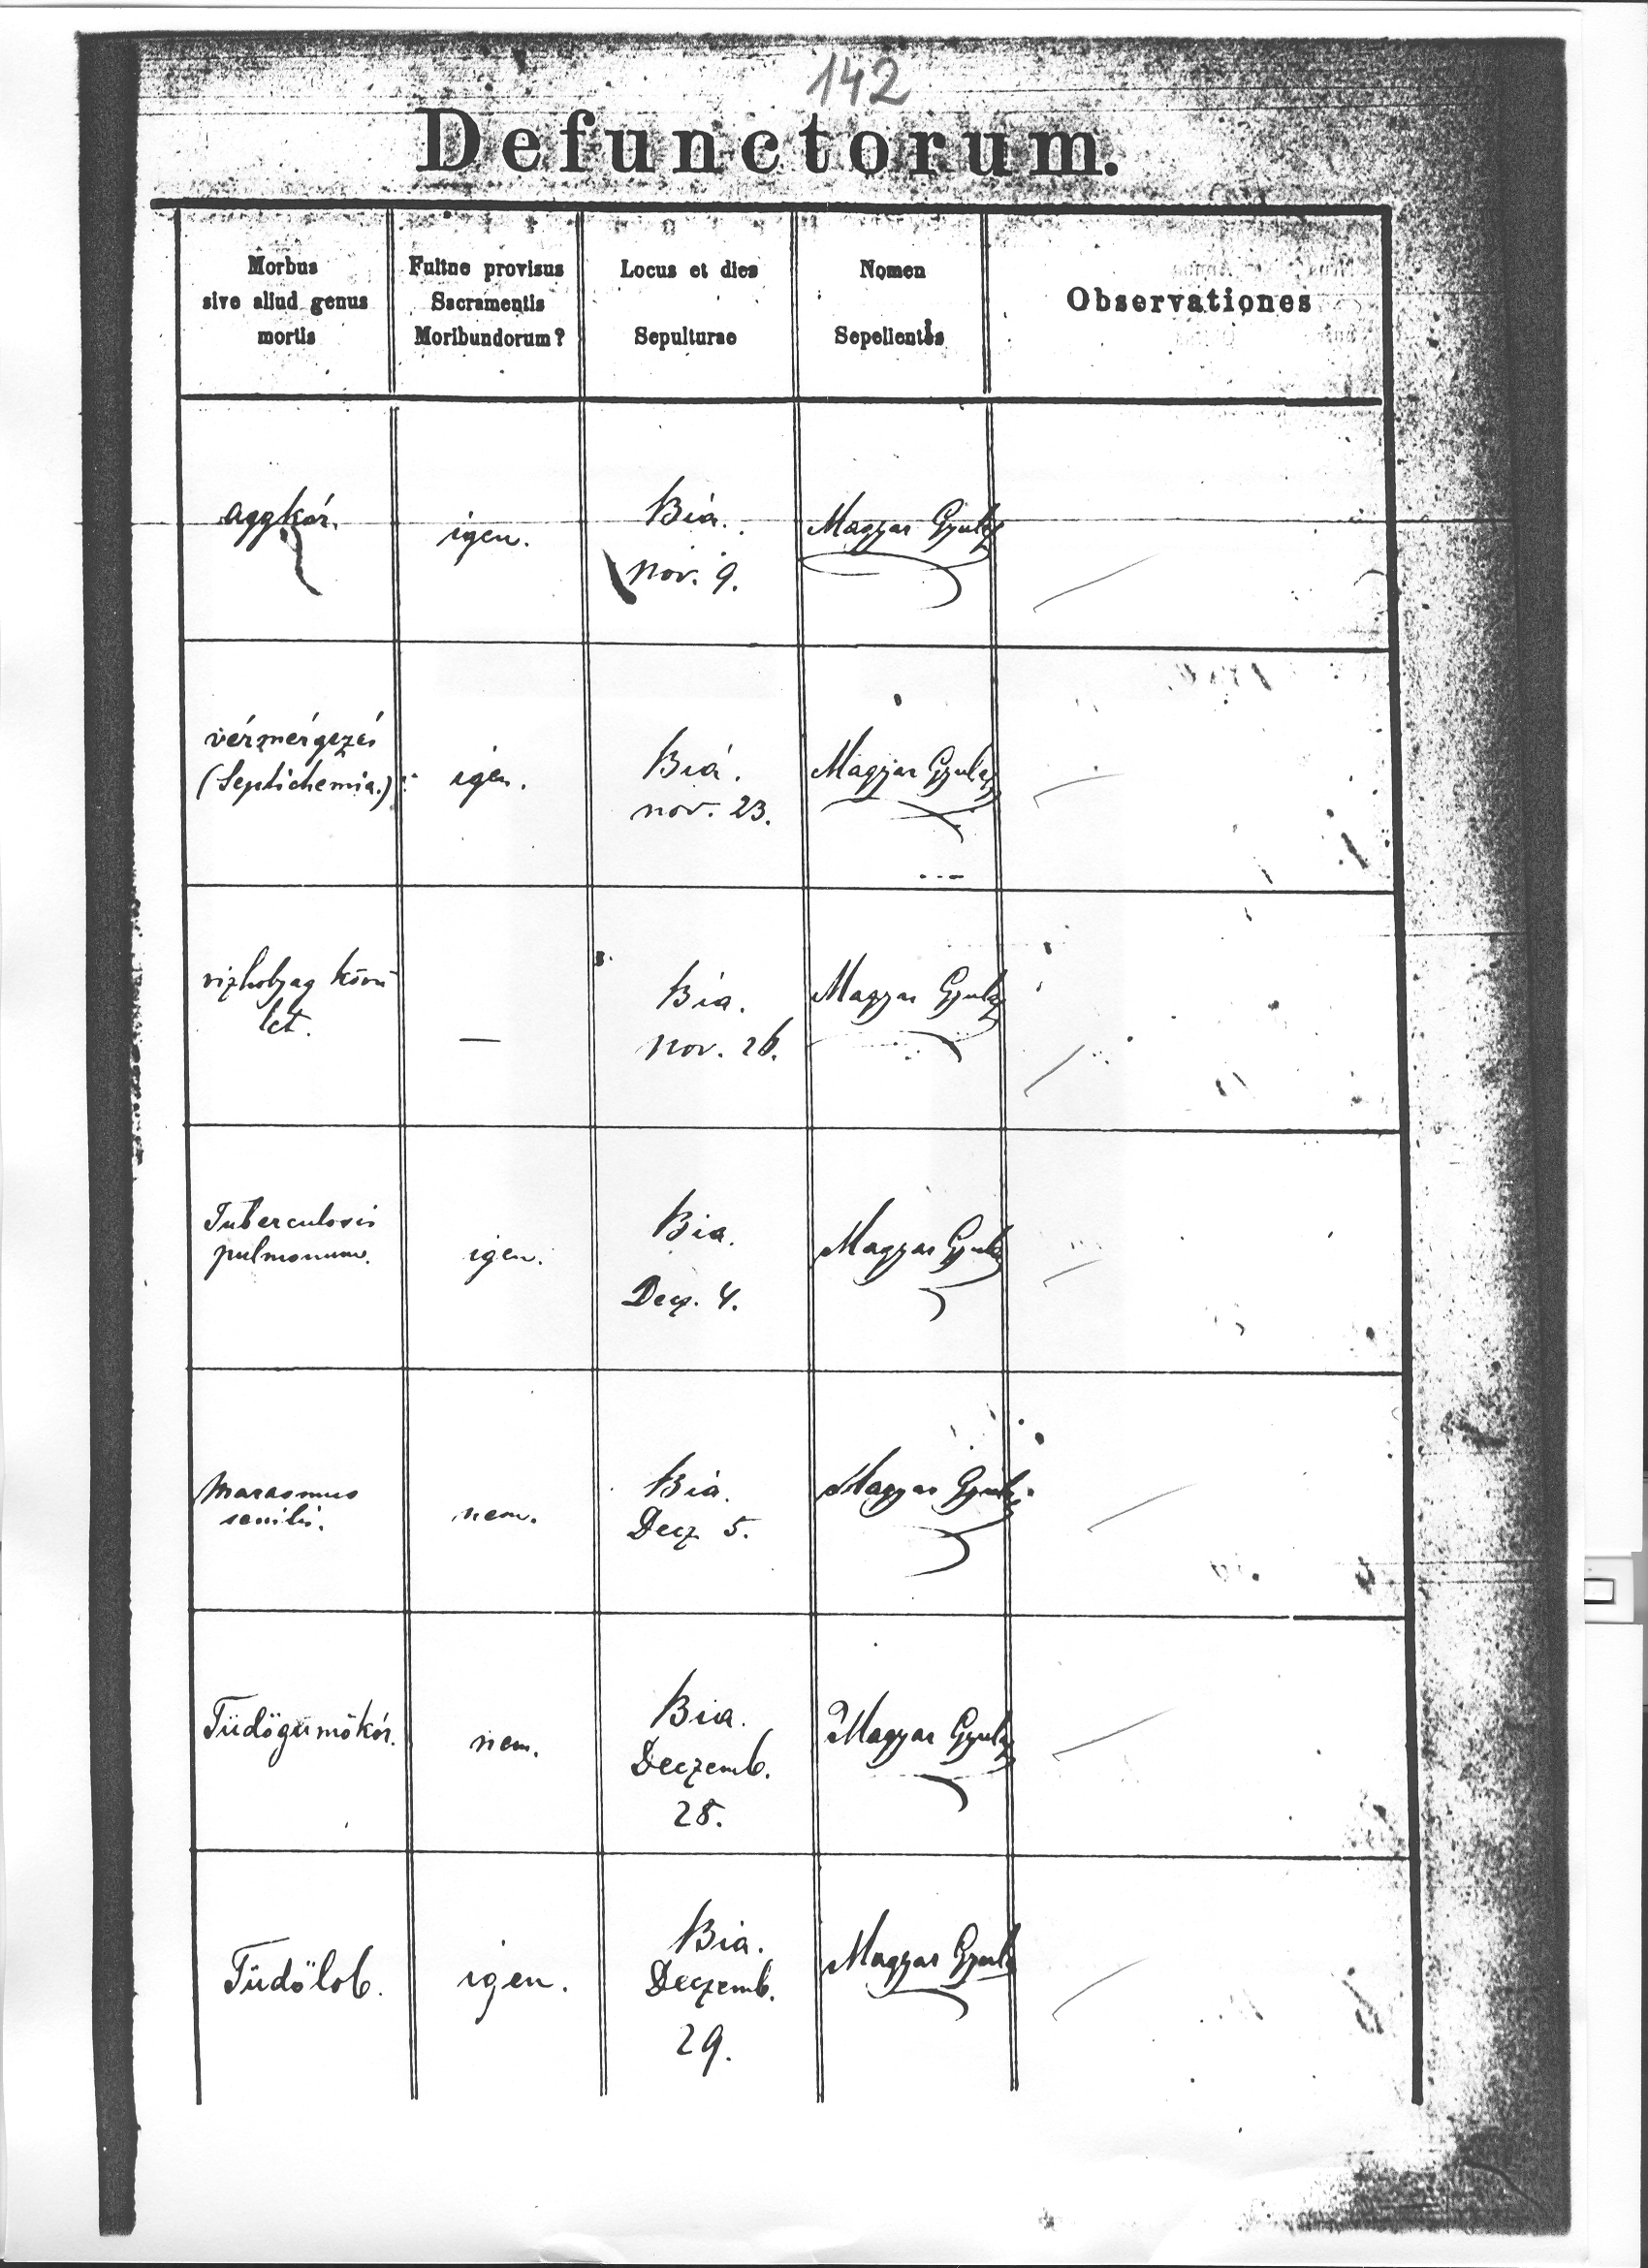 142
Defunctorum.
Morbus
sive aliud genus
mortis
Fuitne provisus
Sacramentis
Moribundorum?
Locus et dies
Sepulturae
Nomen
Sepelientis
Observationes
aggkór.
igen.
Bia.
nov. 9.
Magyar Gyula
vérmérgezés
(Septichemia.)
igen.
Bia.
nov. 23.
Magyar Gyula
let.
—
Bia.
nov. 26.
Magyar Gyula
Tuberculosis
pulmonum.
igen.
Bia.
Decz. 4.
Magyar Gyula
Marasmus
senilis.
nem.
Bia.
Decz 5.
Magyar Gyula
Tüdőgümőkór.
nem.
Bia.
Deczemb.
28.
Magyar Gyula
Tüdőlob.
igen.
Bia.
Deczemb.
29.
Magyar Gyula